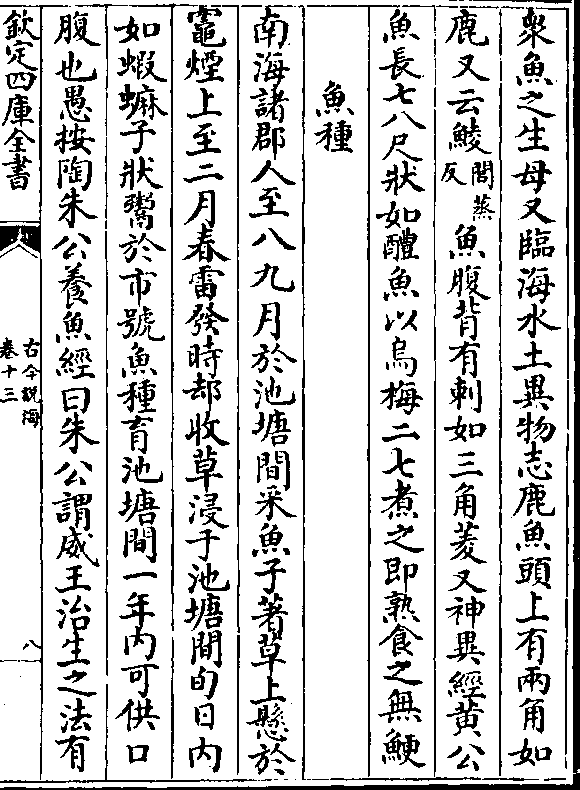 衆魚之生母又臨海水土異物志鹿魚頭上有兩角如
鹿又云鯪閭蒸反魚腹背有刺如三角菱又神異經黄公
魚長七八尺狀如醴魚以烏梅二七煮之即熟食之無鯁
魚種
南海諸郡人至八九月於池塘間采魚子著草上懸於
竈煙上至二月春雷發時却收草浸于池塘間旬日内
如蝦蟆子狀鬻於市號魚種育池塘間一年内可供口
腹也愚按陶朱公養魚經曰朱公謂威王治生之法有
欽定四庫全書
古今説海
卷十三
八